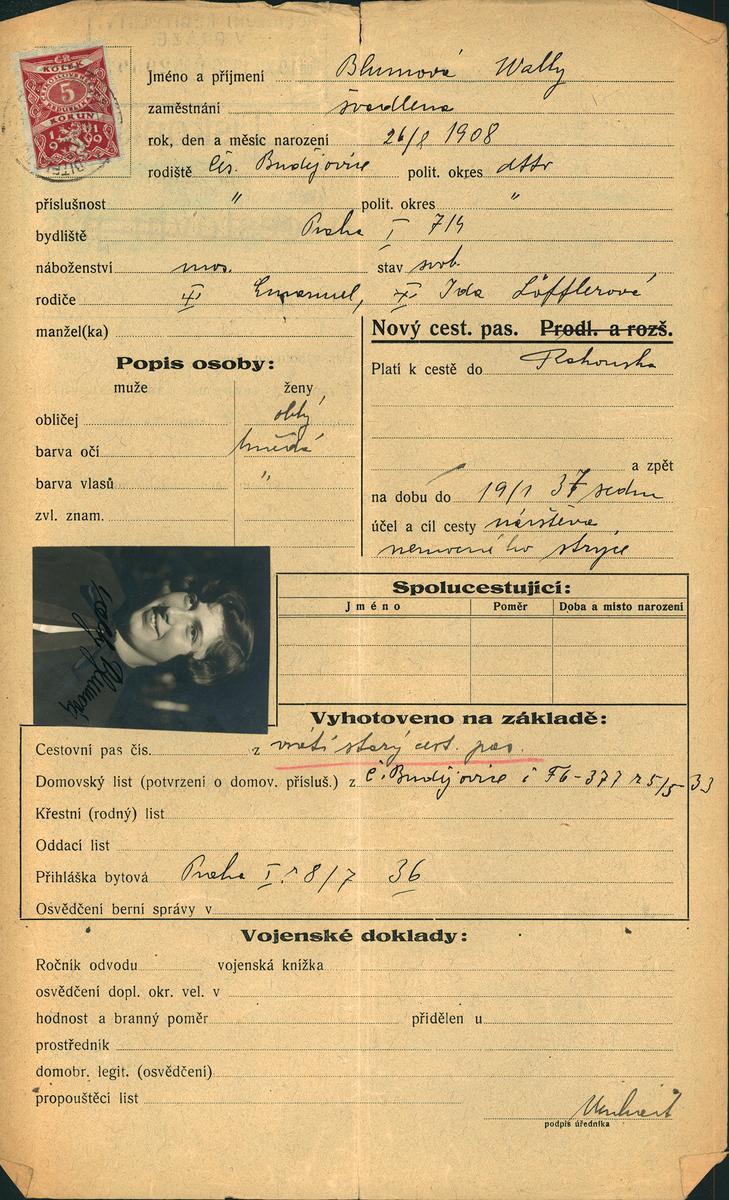 KOLEK
5
KORUN
Jméno a příjmení Blumová Wally
zaměstnání švadlena
rok, den a měsíc narození 26/8 1908
rodiště Čes. Budějovice polit. okres dtto
příslušnost " polit. okres "
bydliště Praha I 714
náboženství mos. stav svob.
rodiče Emanuel, Ida Löfflerová
manžel(ka)
Nový cest. pas. Prodl. a rozš.
Popis osoby:
Platí k cestě do Rakouska
muže ženy
obličej oblý
barva očí hnědá
a zpět
barva vlasů "
na dobu do 19/1 37
zvl. znam.
účel a cíl cesty návštěva
nemocného strýce
Spolucestující:
Jméno Poměr Doba a místo narození
Wally Blumová
Vyhotoveno na základě:
Cestovní pas čís. z vrátí starý cest. pas.
Domovský list (potvrzení o domov. přísluš.) z Č. Budějovice č F6-377 z 5/5-33
Křestní (rodný) list
Oddací list
Přihláška bytová Praha I. z 8/7 36
Osvědčení berní správy v
Vojenské doklady:
Ročník odvodu vojenská knížka
osvědčení dopl. okr. vel. v
hodnost a branný poměr přidělen u
prostředník
domobr. legit. (osvědčení)
propouštěcí list
podpis úředníka